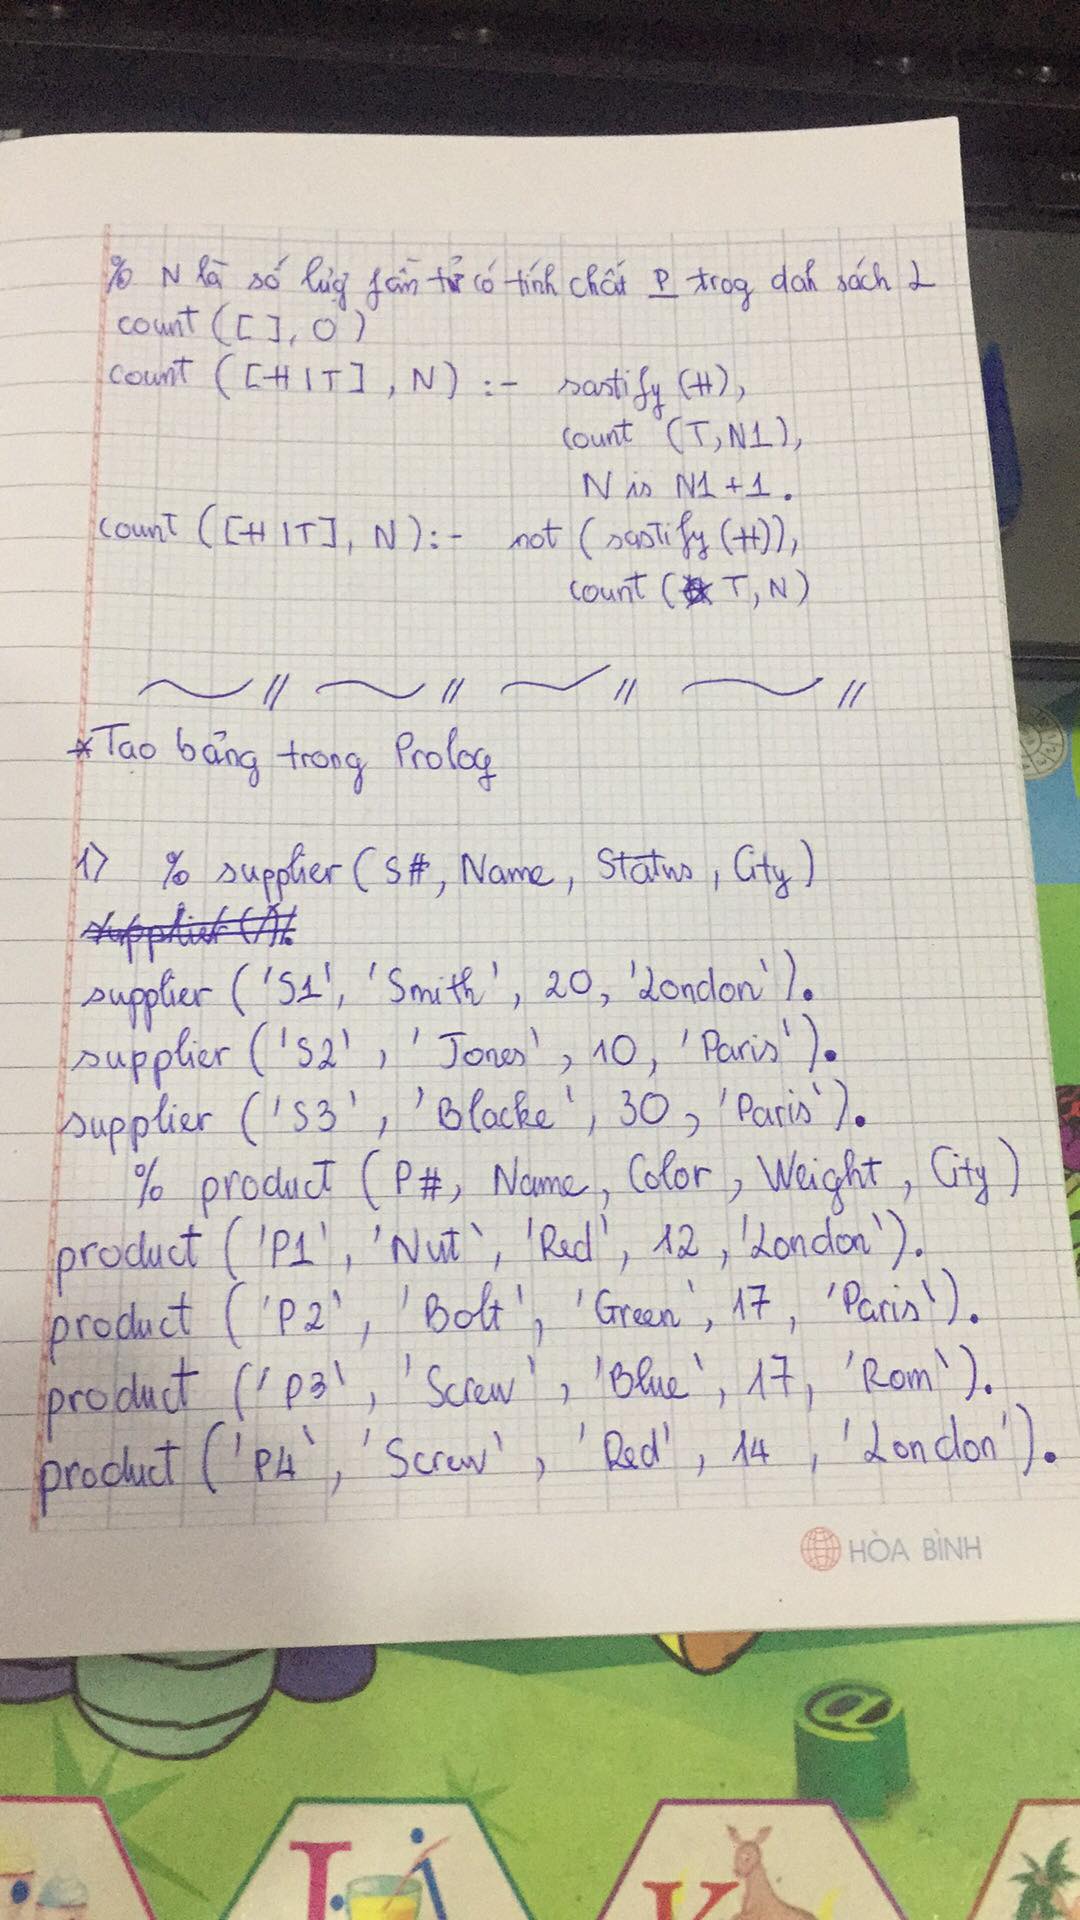 % N là số lựg fần tử có tính chất P trog dah sách L
count ([], 0)
count ([H|T], N) :- sastify (H),
count (T, N1),
N is N1 + 1.
count ([H|T], N) :- not (sastify (H)),
count (T, N)
* Tao bảng trong Prolog
1) % supplier (S#, Name, Status, City)
supplier ('S1', 'Smith', 20, 'London').
supplier ('S2', 'Jones', 10, 'Paris').
supplier ('S3', 'Blacke', 30, 'Paris').
% product (P#, Name, Color, Weight, City)
product ('P1', 'Nut', 'Red', 12, 'London').
product ('P2', 'Bolt', 'Green', 17, 'Paris').
product ('P3', 'Screw', 'Blue', 17, 'Rom').
product ('P4', 'Screw', 'Red', 14, 'London').
HÒA BÌNH
@
I i
K